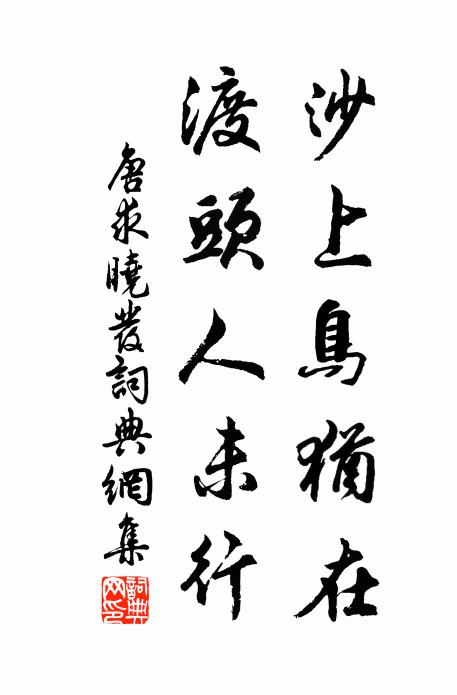 沙上鳥猶在
渡頭人未行
唐求曉發詞典網集
詞典網印